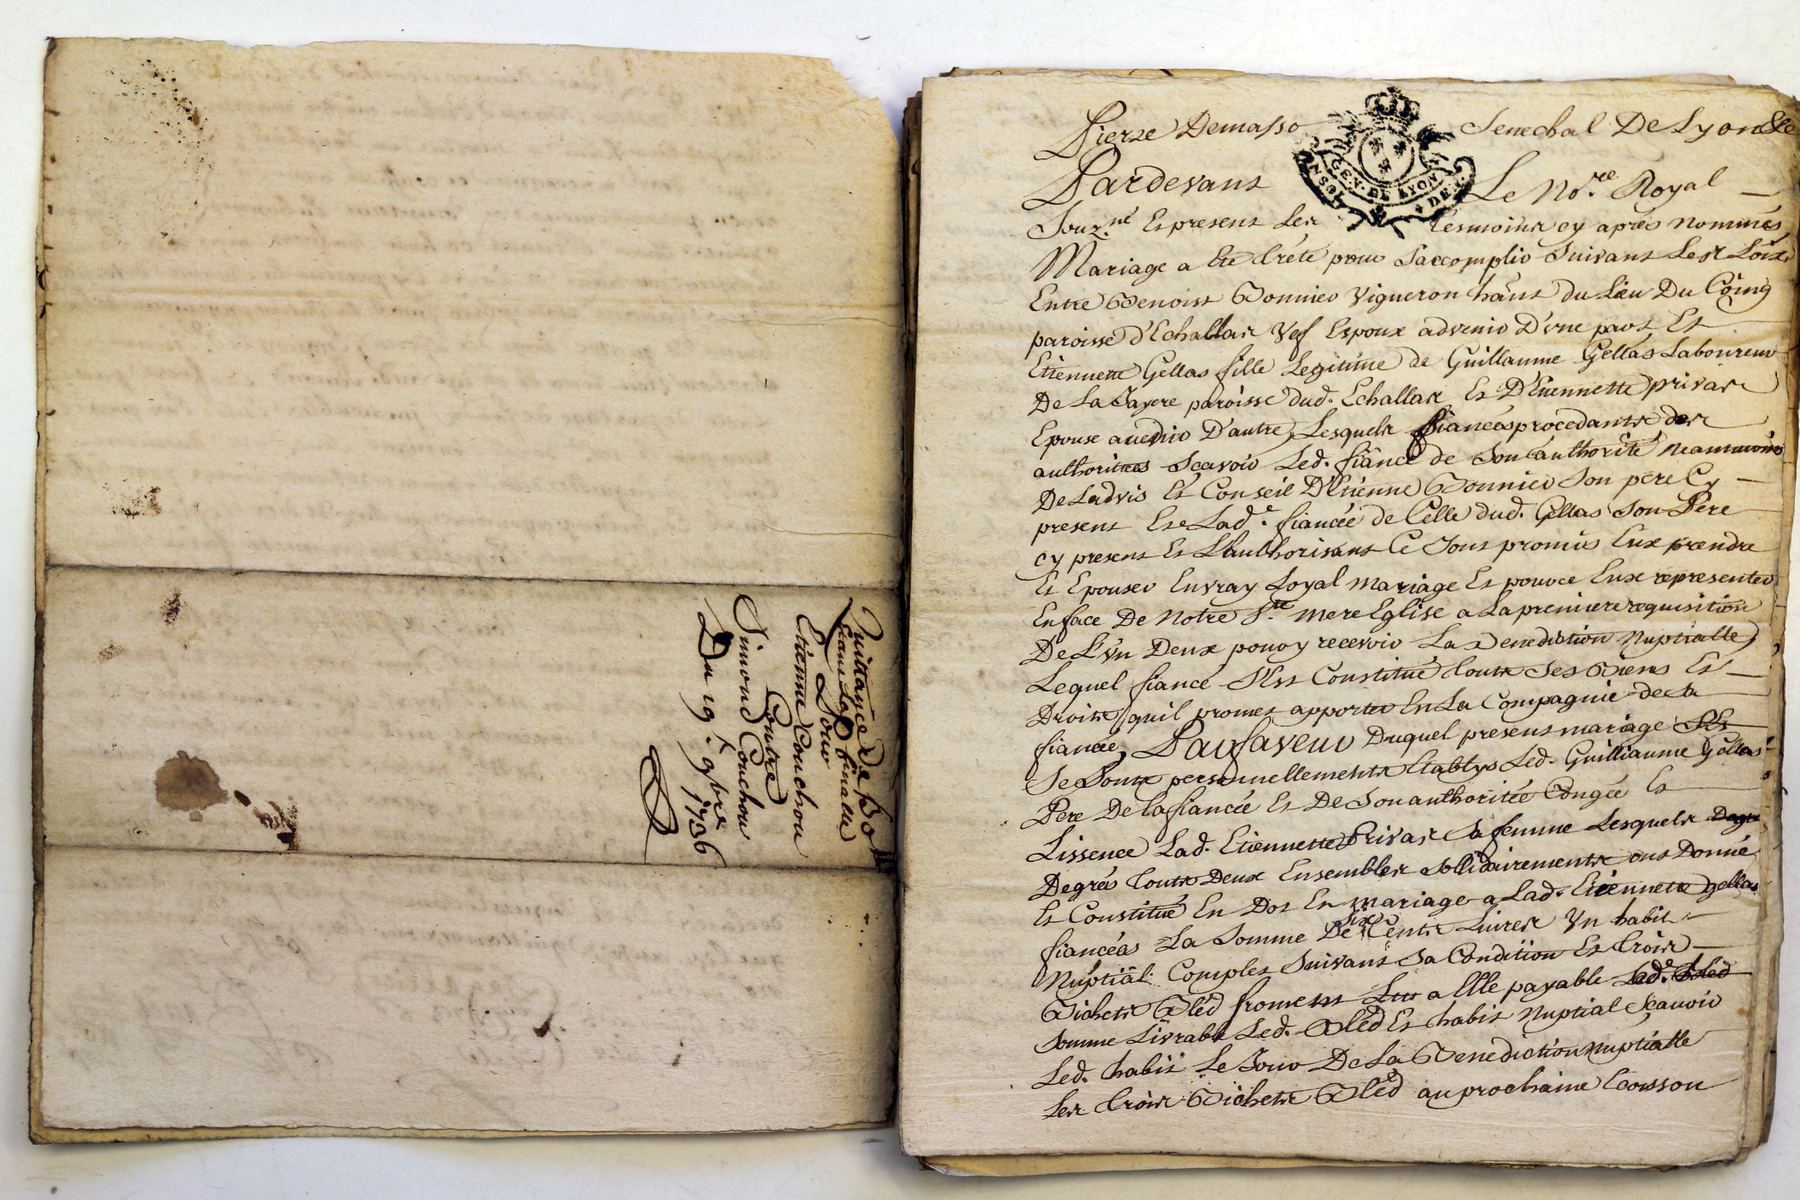 Quittance de 130 ll
Etienne Couchou
Contre
Simond Couchou
Du 19e. 9bre 1736
Pierre Demasso Senechal De Lyon &c
GEN. DE LYON
Pardevant Le No.re Royal
Souz.né Et present Les tesmoins cy apres nommés
Mariage a Eté trété pour Saccomplir Suivant Les Loix
Entre Benoist Bonnier Vigneron ha͠nt du Lieu Du Coing
paroisse d'Echallas Vef Espoux advenir D'une part Et
Etiennette Gellas fille Legitime de Guillaume Gellas Laboureur
De La Fayere paroisse dud. Echallas Et D'Etiennette privas
Epouse avenir D'autre, Lesquels fiancés procedants des
authorités Scavoir Led. fiancé de Son authorité Neanmoins
De Ladvis Et Conseil D'Etienne Bonnier Son pere Cy
present Et Lad.e fiancée de Celle dud. Gellas Son Pere
cy present Et Lauthorisant Ce Sont promis Eux prendre
Et Epouser En vray Loyal Mariage Et pource Eux representer
En face De Notre S.te mere Eglise a La premiere requisition
De L'un Deux pour y recevoir La Benediction Nuptialle,
Lequel fiance S'Est Constitué touts Ses Biens Et
Droits quil promet apporter En La Compagnie de sa
fiancée, Parfaveur Duquel present mariage
Se Sonts personnellements Etablys Led. Guilliaume Gellas
Pere De la fiancée Et De Son authoritée Congée Et
Lissence Lad. Etiennette Privas Sa femme Lesquels
Degrés touts Deux Ensembles Sollidairements ont Donné
Et Constitué En Dot En mariage a Lad. Etiennette gellas
fiancéas La Somme De Six Cents Livres Un habit
Nuptial Complet Suivant Sa Condition Et trois
Bichets Bled froment Le a Elle payable Lad.e
Somme Livrable Led. Bled Et habit Nuptial Scavoir
Led. habit Le Jour De La Benediction Nuptialle
Les trois Bichets Bled au prochaine